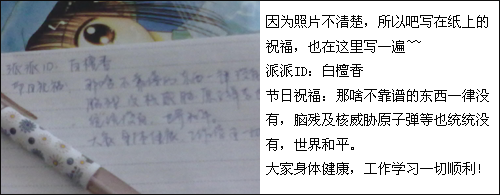 派派ID：白檀香
节日祝福：那啥不靠谱的东西一律
脑残及核威胁原子弹等
统统没有，世界和平。
大家身体健康，工作学习一
因为照片不清楚，所以吧写在纸上的
祝福，也在这里写一遍~~
派派ID：白檀香
节日祝福：那啥不靠谱的东西一律没
有，脑残及核威胁原子弹等也统统没
有，世界和平。
大家身体健康，工作学习一切顺利！